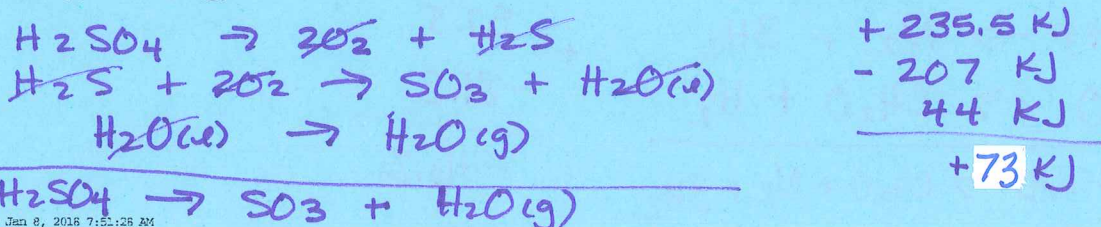 H2SO4 → 2O2 + H2S + 235.5 KJ
H2S + 2O2 → SO3 + H2O(l) - 207 KJ
H2O(l) → H2O(g) 44 KJ
+73 KJ
H2SO4 → SO3 + H2O(g)
Jan 8, 2016 7:51:26 AM